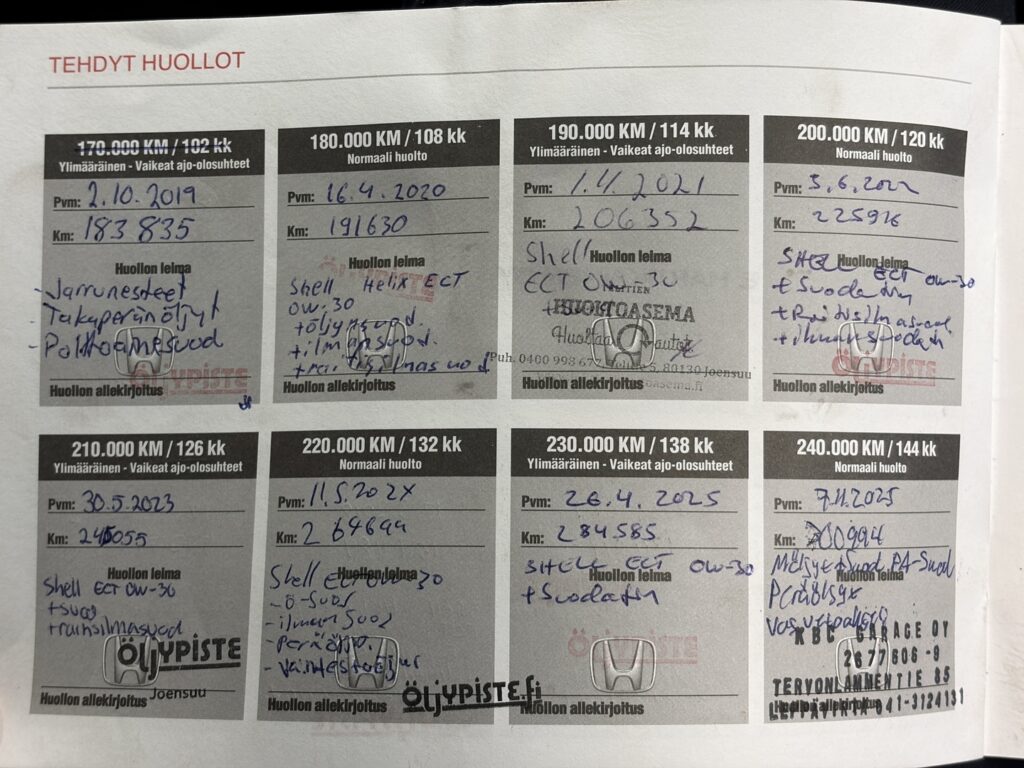 TEHDYT HUOLLOT
170.000 KM / 102 kk
Ylimääräinen - Vaikeat ajo-olosuhteet
Pvm: 2.10.2019
Km: 183 835
Huollon leima
- Jarrunesteet
- Takaperän öljyt
- Polttoainesuod
ÖLJYPISTE
Huollon allekirjoitus
180.000 KM / 108 kk
Normaali huolto
Pvm: 16.4.2020
Km: 191630
Huollon leima
Shell Helix ECT
0W-30
+ öljynsuod.
+ ilmansuod.
Huollon allekirjoitus
190.000 KM / 114 kk
Ylimääräinen - Vaikeat ajo-olosuhteet
Pvm: 1.4.2021
Km: 206352
Huollon leima
Shell
ECT 0W-30
HUOLTOASEMA
Huoltaa
Joensuu
Huollon allekirjoitus
200.000 KM / 120 kk
Normaali huolto
Pvm:
Km:
Huollon leima
SHELL ECT 0W-30
+ Suodatin
ÖLJYPISTE
Huollon allekirjoitus
210.000 KM / 126 kk
Ylimääräinen - Vaikeat ajo-olosuhteet
Pvm: 30.5.2023
Km: 245055
Huollon leima
Shell ECT 0W-30
+ suod
ÖLJYPISTE
Joensuu
Huollon allekirjoitus
220.000 KM / 132 kk
Normaali huolto
Pvm:
Km: 264644
Huollon leima
Shell ECT 0W-30
- Ö-suod
- ilmansuod
ÖLJYPISTE.fi
Huollon allekirjoitus
230.000 KM / 138 kk
Ylimääräinen - Vaikeat ajo-olosuhteet
Pvm: 26.4.2025
Km: 284585
Huollon leima
SHELL ECT 0W-30
+ Suodatin
Huollon allekirjoitus
240.000 KM / 144 kk
Normaali huolto
Pvm:
Km:
Huollon leima
KBC GARAGE OY
2677606-9
TERVONLAMMENTIE 85
LEPPÄVIRTA 041-3124131
Huollon allekirjoitus